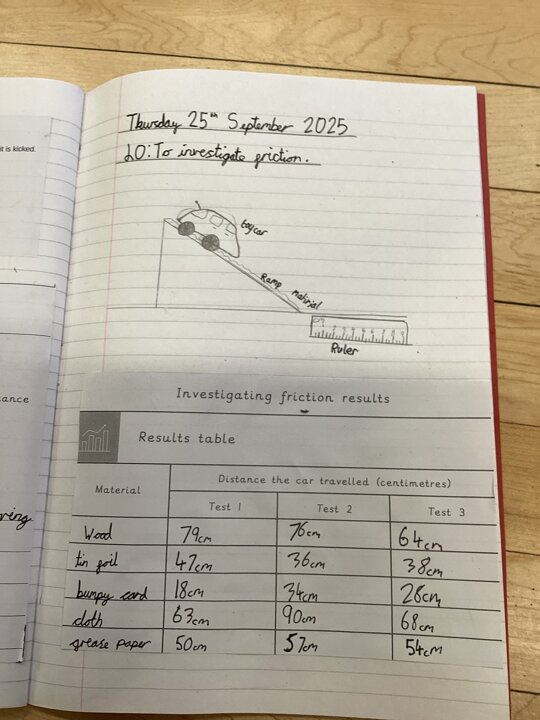 it is kicked.
Thursday 25th September 2025
LO: To investigate friction.
toy car
Ramp material
Ruler
ance
ring
Investigating friction results
Results table
Material
Distance the car travelled (centimetres)
Test 1 Test 2 Test 3
Wood 79cm 76cm 64cm
tin foil 47cm 36cm 38cm
bumpy card 18cm 34cm 28cm
cloth 63cm 90cm 68cm
grease paper 50cm 57cm 54cm